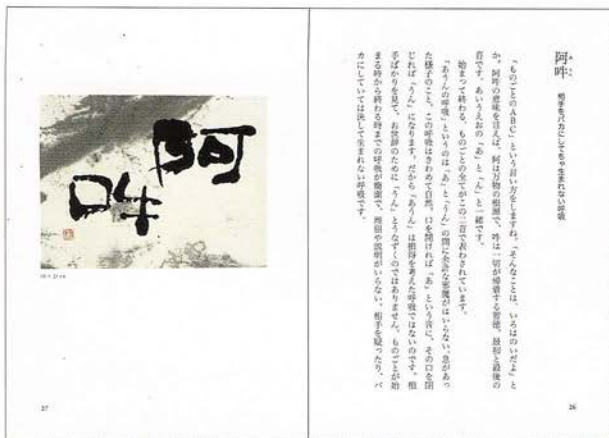 阿吽
あうん
相手をバカにしてちゃ生まれない呼吸
「ものごとのABC」という言い方をしますね。「そんなことは、いろはのいだよ」と
か。阿吽の意味を言えば、阿は万物の根源で、吽は一切が帰着する智徳。最初と最後の
音です。あいうえおの「あ」と「ん」と一緒です。
始まって終わる。ものごとの全てがこの二音で表わされています。
「あうんの呼吸」というのは「あ」と「うん」の間に余計な邪魔がはいらない、息があっ
た様子のこと。この呼吸はきわめて自然。口を開ければ「あ」という音に、その口を閉
じれば「うん」になります。だから「あうん」は損得を考えた呼吸ではないのです。相
手ばかりを見て、お世辞のために「うん」とうなずくのではありません。ものごとが始
まる時から終わる時までの呼吸が簡潔で、理屈や説明がいらない。相手を疑ったり、バ
カにしていては決して生まれない呼吸です。
26
阿吽
27